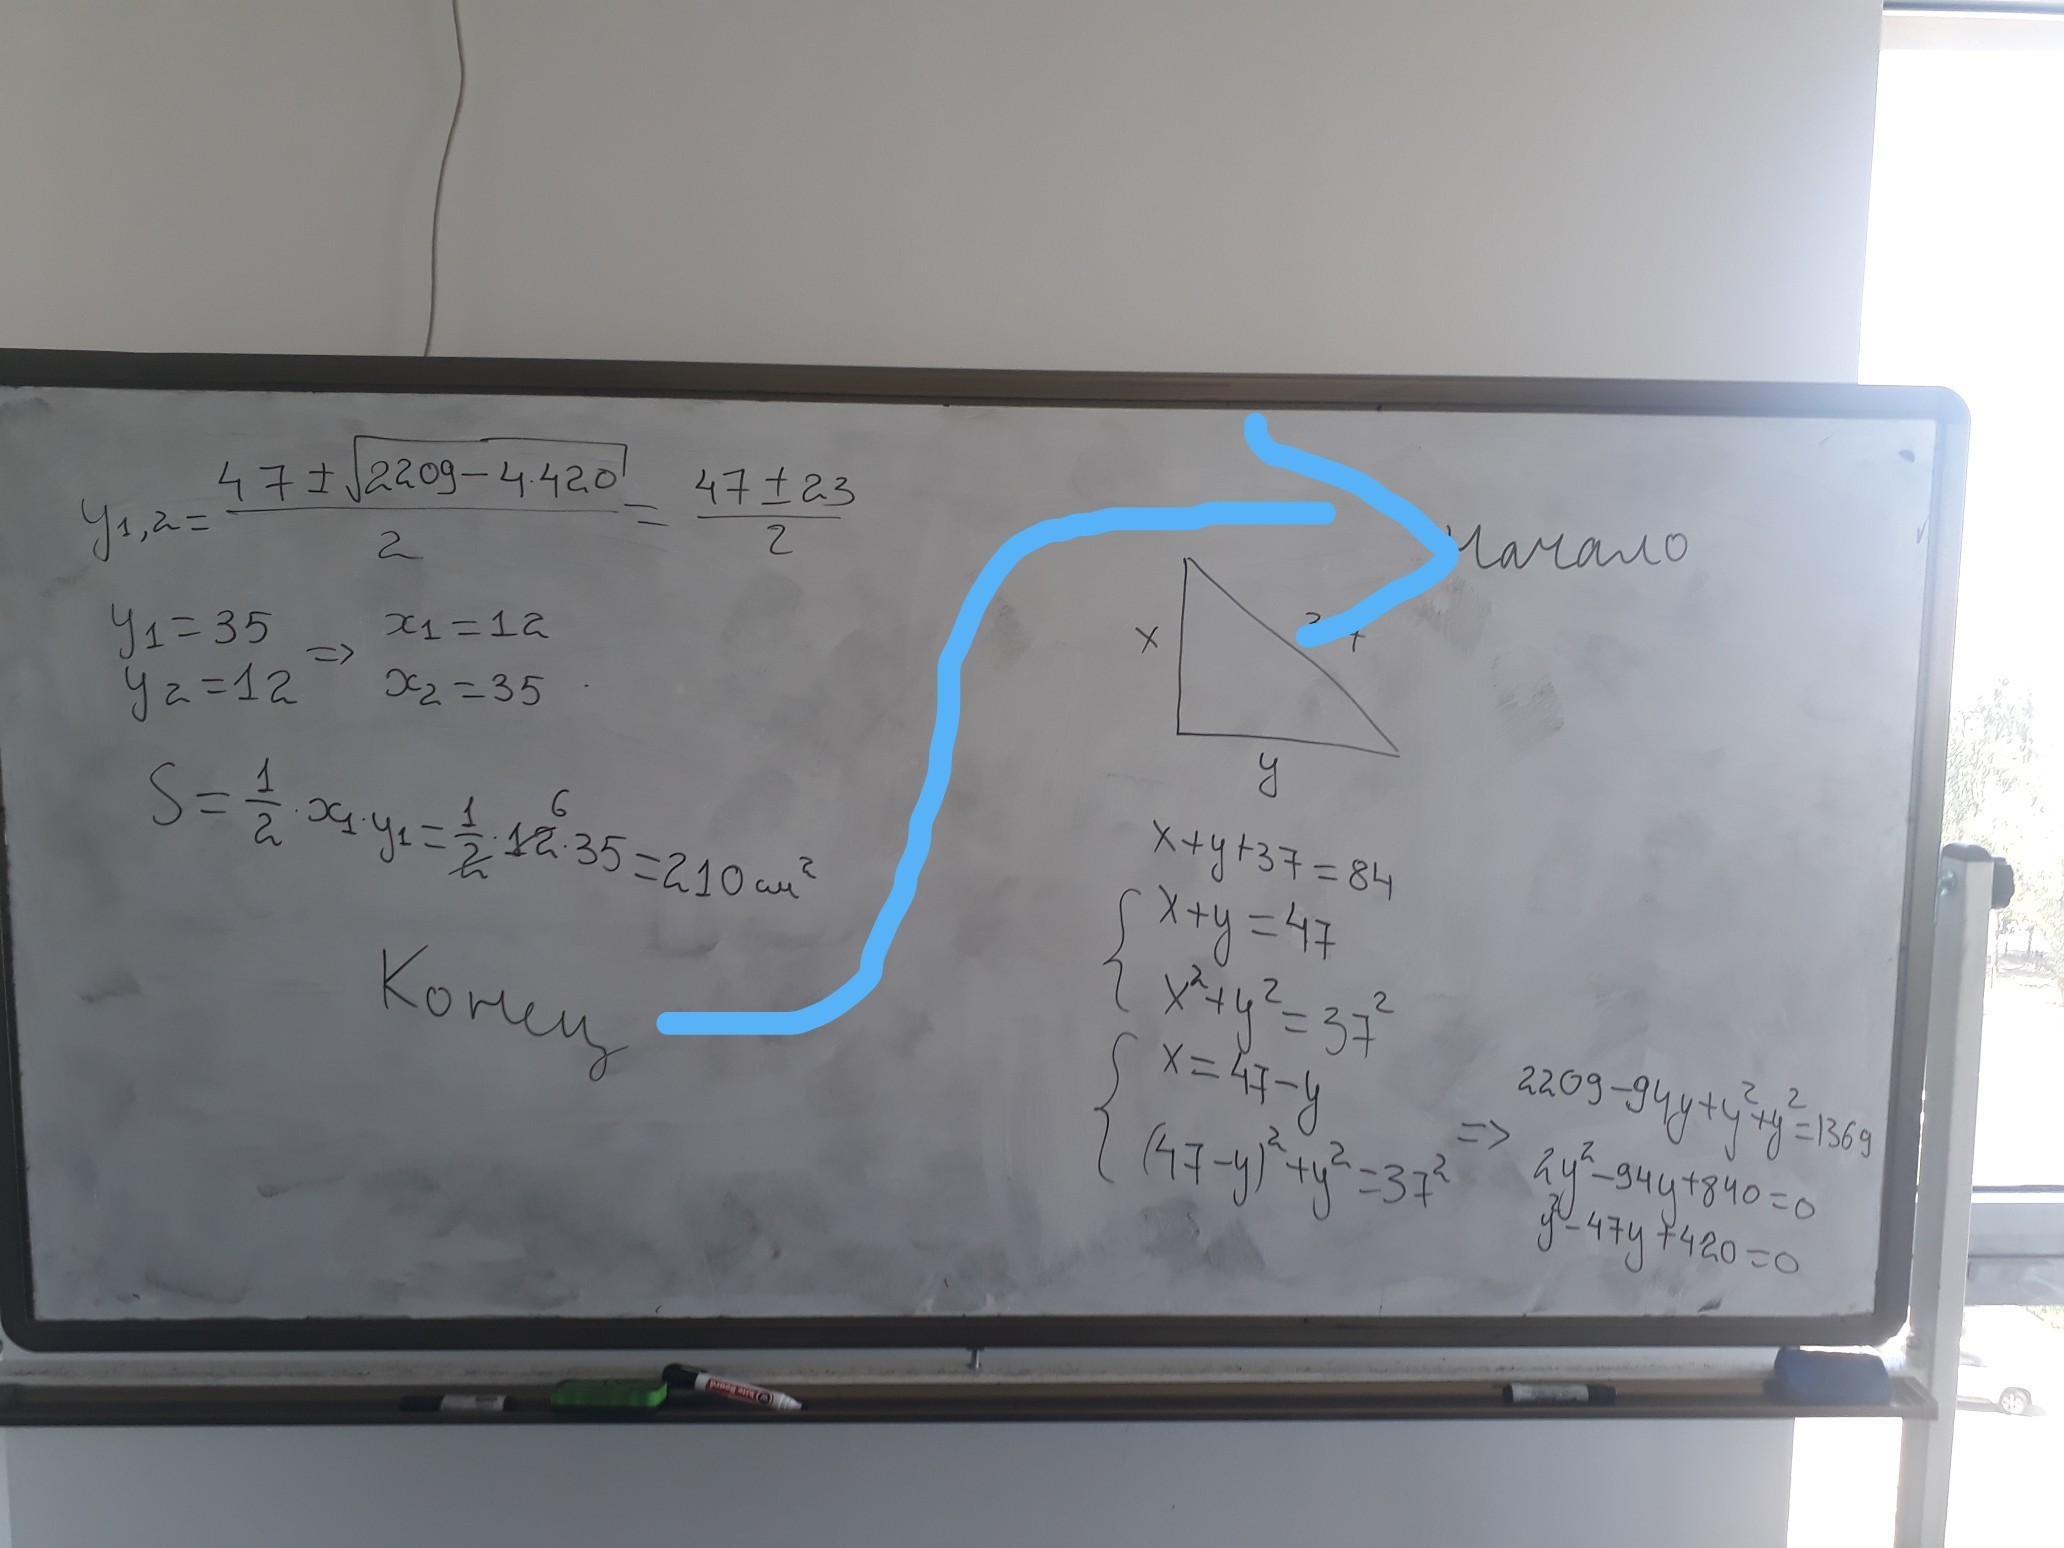 Начало
x
y
x+y+37=84
x+y=47
x²+y²=37²
x=47-y
(47-y)²+y²=37²
=>
2209-94y+y²+y²=1369
2y²-94y+840=0
y²-47y+420=0
y1,2 = (47±√(2209-4·420))/2 = (47±23)/2
y1=35 => x1=12
y2=12 x2=35
S=1/2·x1·y1=1/2·12·35=210 см²
6
Конец
White Board